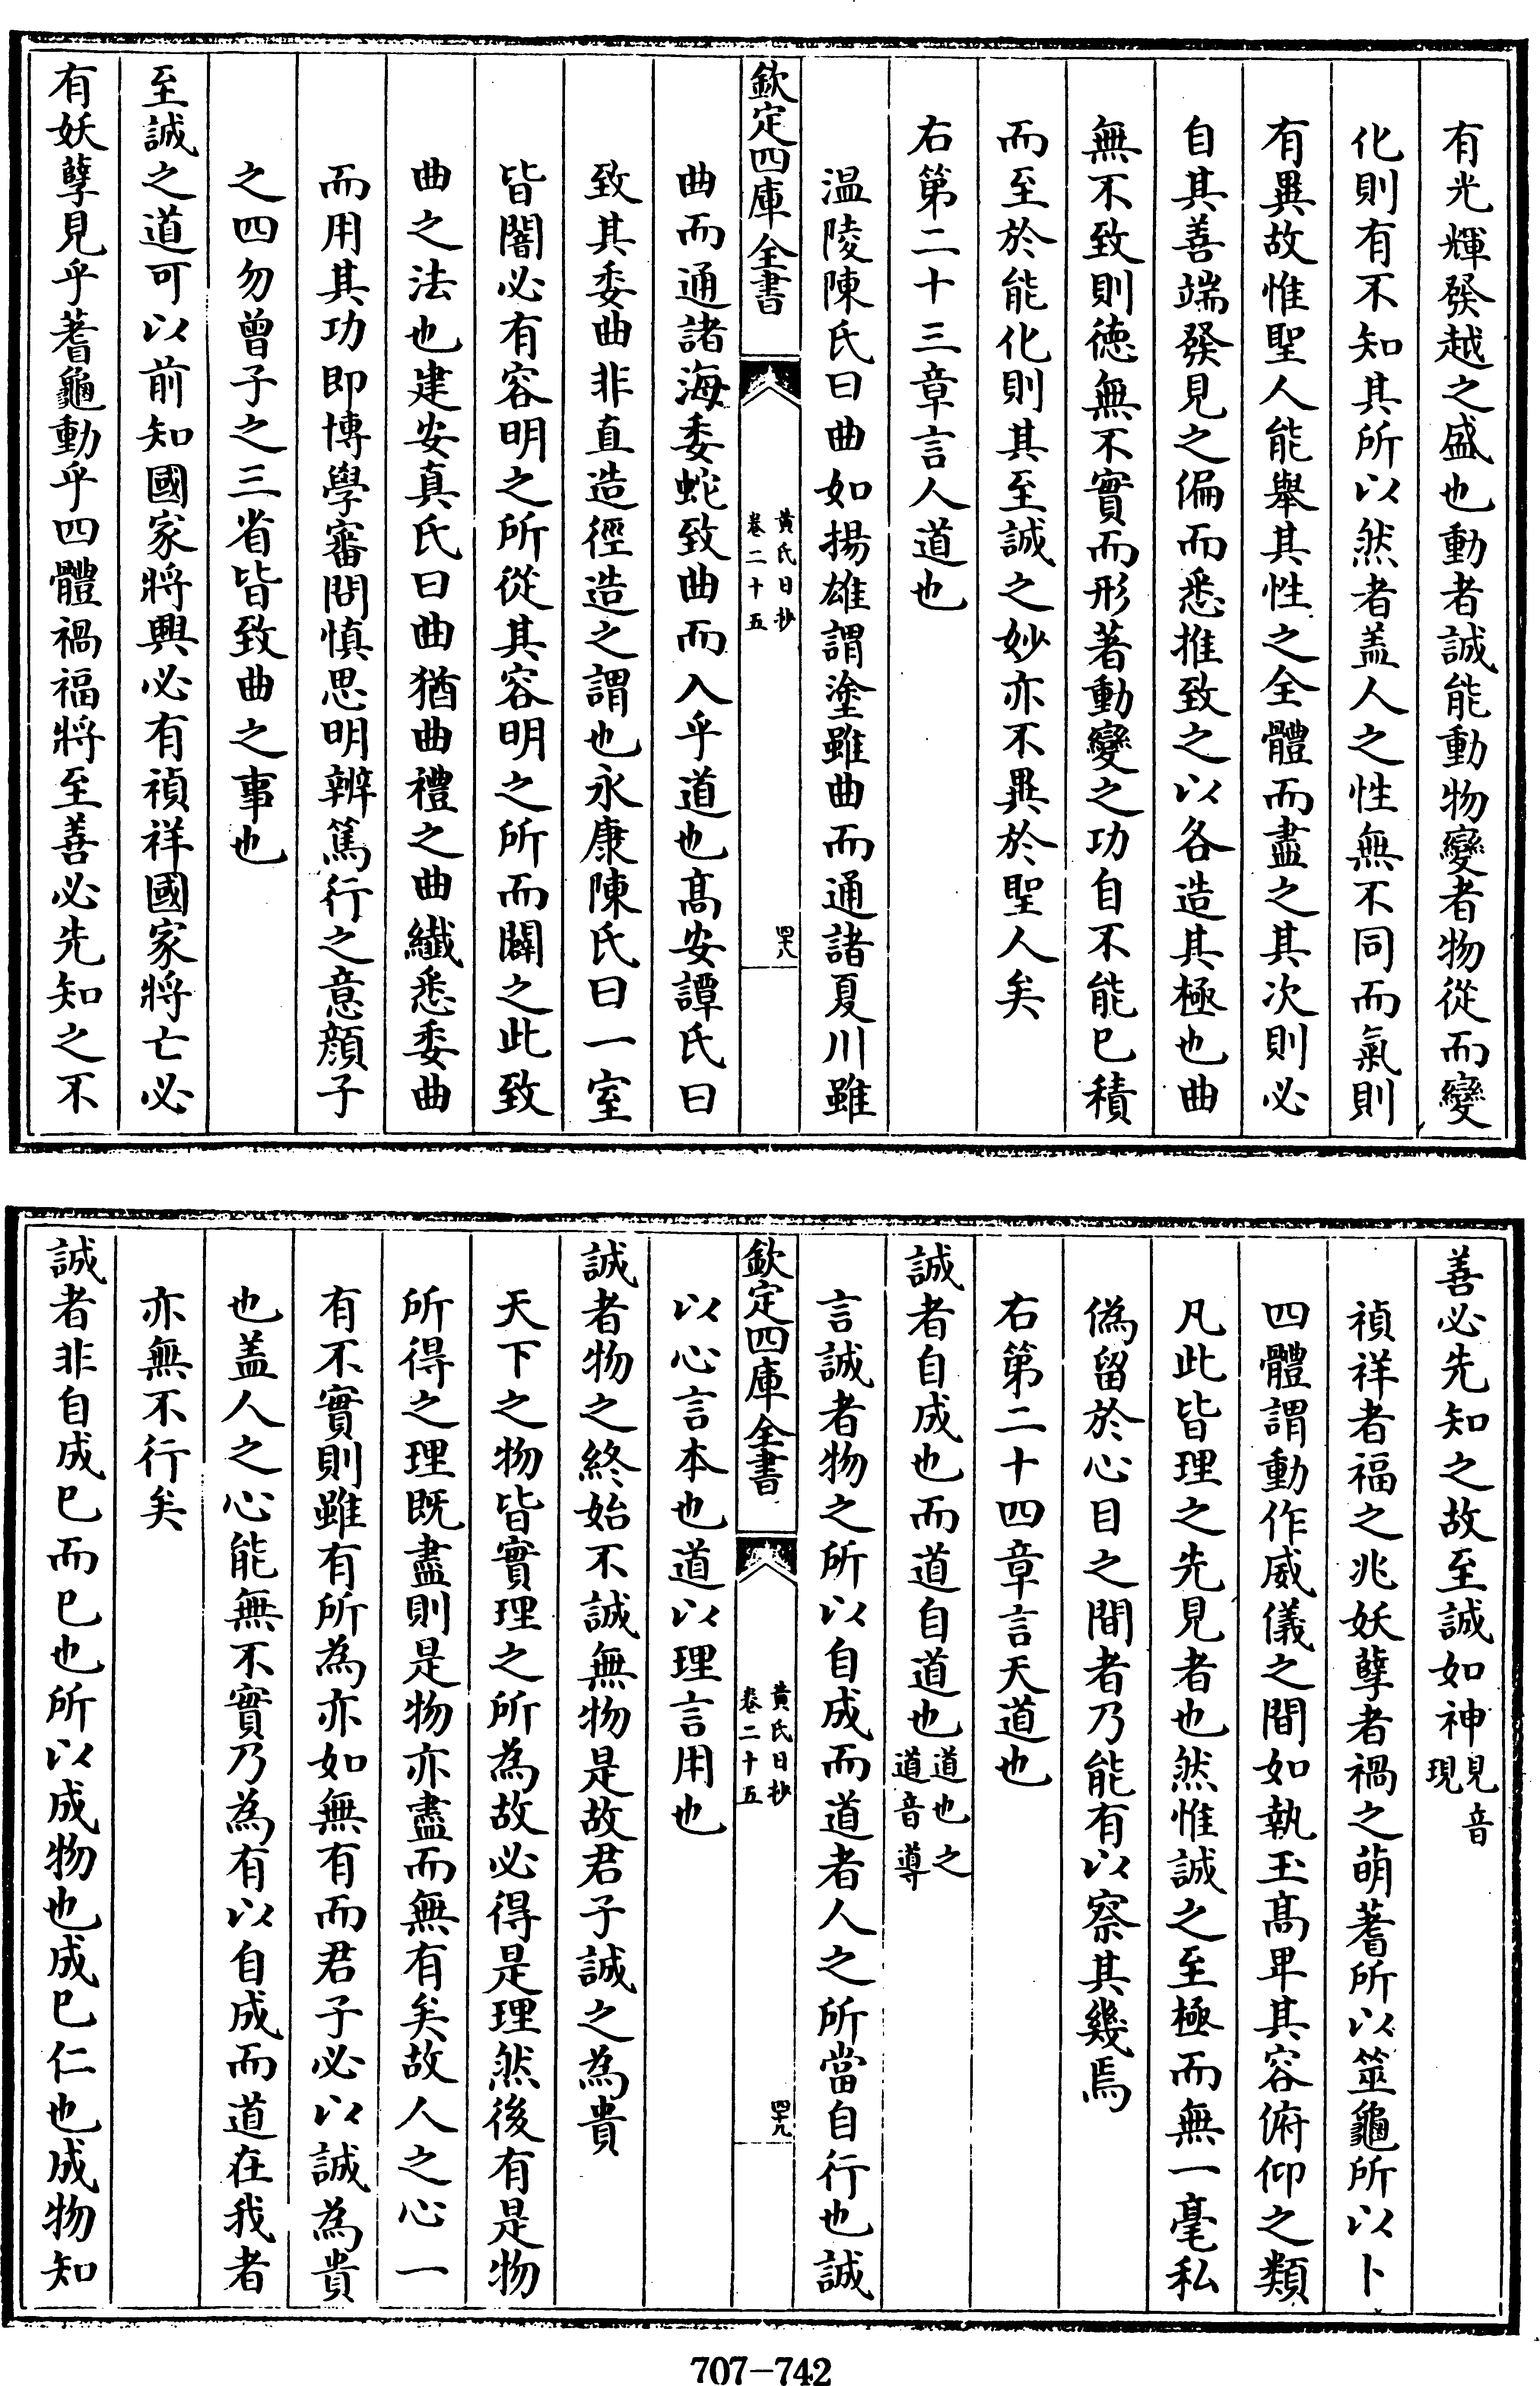 有光輝發越之盛也動者誠能動物變者物從而變
化則有不知其所以然者盖人之性無不同而氣則
有異故惟聖人能舉其性之全體而盡之其次則必
自其善端發見之偏而悉推致之以各造其極也曲
無不致則徳無不實而形著動變之功自不能已積
而至於能化則其至誠之妙亦不異於聖人矣
右第二十三章言人道也
温陵陳氏曰曲如揚雄謂塗雖曲而通諸夏川雖
欽定四庫全書
黄氏日抄
卷二十五
四十八
曲而通諸海委蛇致曲而入乎道也髙安譚氏曰
致其委曲非直造徑造之謂也永康陳氏曰一室
皆闇必有容明之所從其容明之所而闢之此致
曲之法也建安真氏曰曲猶曲禮之曲纎悉委曲
而用其功即博學審問慎思明辨篤行之意顔子
之四勿曾子之三省皆致曲之事也
至誠之道可以前知國家將興必有禎祥國家將亡必
有妖孽見乎蓍龜動乎四體禍福將至善必先知之不
善必先知之故至誠如神見音
現
禎祥者福之兆妖孽者禍之萌蓍所以筮龜所以卜
四體謂動作威儀之間如執玉髙卑其容俯仰之類
凡此皆理之先見者也然惟誠之至極而無一毫私
偽留於心目之間者乃能有以察其幾焉
右第二十四章言天道也
誠者自成也而道自道也道也之
道音導
言誠者物之所以自成而道者人之所當自行也誠
欽定四庫全書
黄氏日抄
卷二十五
四十九
以心言本也道以理言用也
誠者物之終始不誠無物是故君子誠之為貴
天下之物皆實理之所為故必得是理然後有是物
所得之理既盡則是物亦盡而無有矣故人之心一
有不實則雖有所為亦如無有而君子必以誠為貴
也盖人之心能無不實乃為有以自成而道在我者
亦無不行矣
誠者非自成已而已也所以成物也成已仁也成物知
707-742